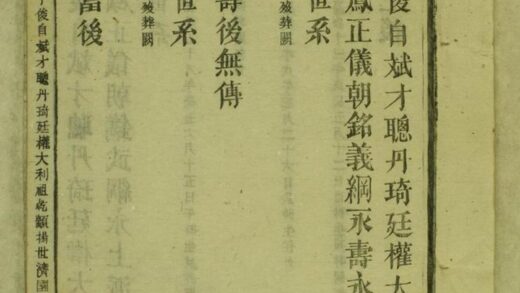 俊自斌才聰丹琦廷權大
鳳正儀朝銘義綱永壽永
世系
殁葬闕
壽後無傳
世系
殁葬闕
當後
俊自斌才聰丹琦廷權大利祖
揚世濟